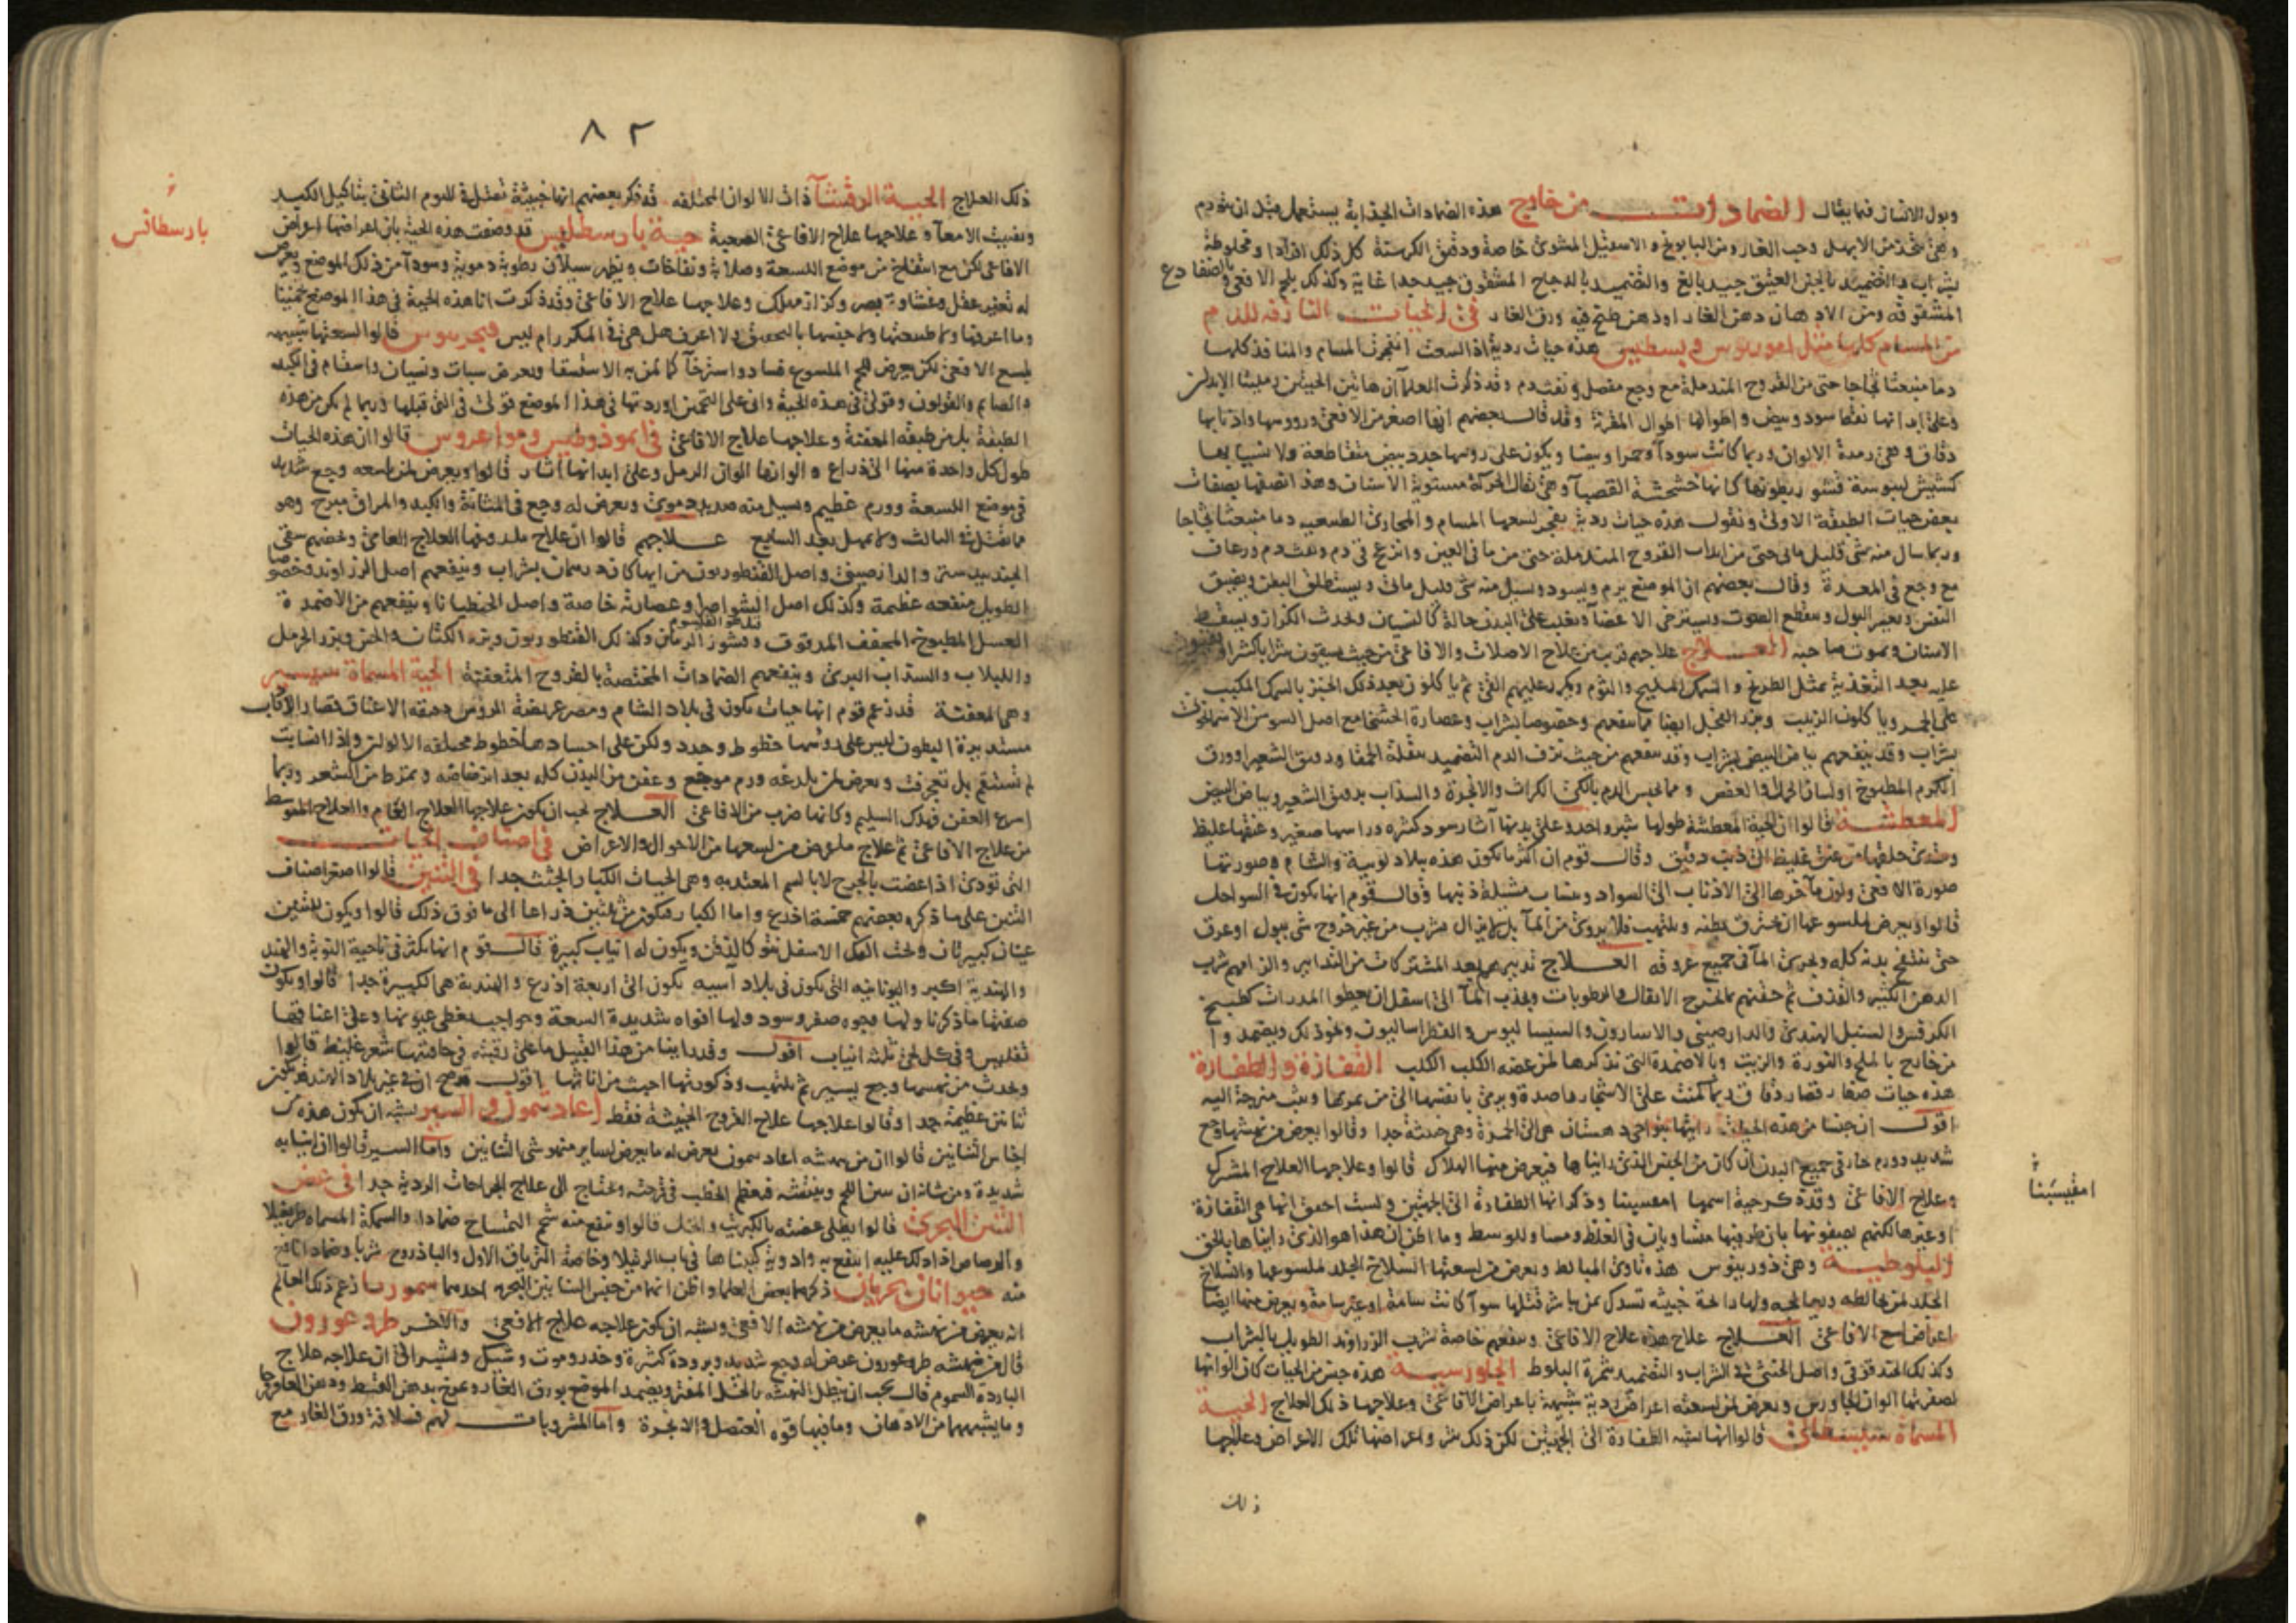 وبول الانسان فيما يقال الضمادات من خارج هذه الضمادات الجذابة يستعمل قبل ان تورم
وهي تتخذ من الابهل وحب الغار ومن البابونج والاسقيل المشوي خاصة ودقيق الكرسنة كل ذلك افرادا ومخلوطة
بشراب والتضميد بالجبن العتيق جيد بالغ والتضميد بالدجاج المشقوق جيد جدا غاية وكذلك بلحم الافعى والضفادع
المشقوقة ومن الادهان دهن الغار او دهن طبخ فيه ورق الغار في الحيات النازفة للدم
من المسام كلها مثل هذه حيات ردية اذا لسعت انفجرت المسام والمنافذ كلها
دما منبعثا حتى من القروح المندملة مع وجع مفصل ونفث دم وقد ذكرت العلما ان هاتين الحيتين
وعلى ابدانها نقط سود وبيض واطوالها اطوال المقرنة وقد قال بعضهم انها اصغر من الافعى ورووسها واذنابها
دقاق وهي رمدة الالوان وربما كانت سودا وحمرا وبيضا ويكون على روسها جدد بيض متقاطعة
كشيش ليبوسة قشور بطونها كانها خشخشة القصبا وهي ثقال الحركة مستوية الاسنان
بعض حيات الطبقة الاولى ونقول هذه حيات ردية يفجر لسعها المسام والمجاري الطبيعية دما منبعثا
وربما سال منه شي قليل مائي حتى من اثار القروح المندملة حتى من ماقي العين وانزعج قي دم ونفث دم ورعاف
مع وجع في المعدة وقال بعضهم ان الموضع يرم ويسود ويسيل منه شي قليل مائي ويستطلق البطن ويضيق
النفس ويعسر البول وينقطع الصوت ويسترخي الاعضا ويغلب على البدن حالة كالنسيان ويحدث الكزاز ويسقط
الاسنان ويموت صاحبه العلاج علاجهم قريب من علاج الاصلات والافاعي من حيث يسقون شرابا كثيرا
عليه بعد التغذية بمثل الطريخ والسمك المليح والثوم ويكرر عليهم القي ثم ياكلون بعد ذلك الخبز بالسمك المكبب
على الجمر وياكلون الزبيب وبزر الفجل ايضا مما ينفعهم وخصوصا بشراب وعصارة الخشخاش مع اصل السوسن الاسمانجوني
بشراب وقد ينفعهم بياض البيض بشراب وقد ينفعهم من حيث نزف الدم التضميد ببقلة الحمقا ودقيق الشعير او ورق
الكرم المطبوخ او لسان الحمل والعفص ومما يحبس الدم بالكي الكراث والانجرة والسذاب بدقيق الشعير وبياض البيض
المعطشة قالوا ان الحية المعطشة طولها شبر واحد وعلى بدنها اثار سود كثيرة وراسها صغير وعنقها غليظ
ويتدي خلقها من عنق غليظ الى ذنب دقيق وقال قوم ان اكثر ما يكون هذه ببلاد لوبية والشام وصورتها
صورة الافعى ولون ماخرها الى الاذناب الى السواد وقال قوم انها يكون في السواحل
قالوا ويعرض لملسوعها ان يحترق بطنه ويلتهب فلا يروى من الما بل لا يزال يشرب من غير خروج شي ببول او عرق
حتى ينتفخ بدنه كله ويجري الما في جميع عروقه العلاج تدبيرهم بعد المشتركات من التدابير والزامهم شرب
الدهن الكثير والقذف ثم حقنهم بالمخرج الاثقال والرطوبات ويجذب الما الى اسفل ان يعطوا المدرات كطبيخ
الكرفس والسنبل الهندي والدارصيني والاسارون والسيساليوس والفطراساليون ونحو ذلك ويضمدوا
من خارج بالملح والنورة والزيت وبالاضمدة التي نذكرها لمن عضه الكلب الكلب القفازة والطفارة
هذه حيات صغار قصار دقاق ربما كمنت على الاشجار راصدة ويرمي بانفسها الى من يمر بها ويثب منزجة اليه
اقول ان جنسا من هذه الحيات رايتها بنواحي دهستان هي الى الحمرة وهي خبيثة جدا وقالوا يعرض من نهشها وجع
شديد وورم حار في جميع البدن ان كان من الجنس الذي رايناها فيعرض منها الهلاك قالوا وعلاجها العلاج المشترك
وعلاج الافاعي وقد ذكر حية اسمها امفسينا وذكر انها الطفارة الى الجهتين ولست احقق انها هي القفازة
او غيرها لكنهم يصفونها بان طرفيها متساويان في الغلظ ومساو للوسط وما اظن ان هذا هو الذي رايناها بالحق
البلوطية وهي ذوربنوس هذه تاوي المبالط ويعرض من لسعتها انسلاخ الجلد لملسوعها وانسلاخ
الجلد لمن خالطه وربما لمسه ولها رائحة خبيثة تستدل بمن باشر قتلها سوا كانت سامة او غير سامة ويعرض منها ايضا
اعراض لسع الافاعي العلاج علاج هذه علاج الافاعي وينفعهم خاصة شرب الزراوند الطويل بالشراب
وكذلك الحندقوقى واصل الخنثى في الشراب والتضميد بثمرة البلوط الجاورسية هذه جنس من الحيات كان الوانها
لصفرتها الوان الجاورس ويعرض لمن لسعته اعراض ردية شبيهة باعراض الافاعي وعلاجها ذلك العلاج الحية
المسماة قالوا انها تشبه الطفارة الى الجهتين لكن ذلك شر واعراضها تلك الاعراض وعلاجها
ذلك
امفيسبينا
٨٢
ذلك العلاج الحية الرقشا ذات الالوان المختلفة قد ذكر بعضهم انها خبيثة تقتل في اليوم الثاني بتاكيل الكبد
وتفتيت الامعا وعلاجها علاج الافاعي الصعبة حية بارسطليس قد وصفت هذه الحية بان اعراضها اعراض
الافاعي لكن مع انتفاخ من موضع اللسعة وصلابة ونفاخات ويظهر سيلان رطوبة دموية وسودا من ذلك الموضع ويعرض
له تغير عقل وغشاوة بصر وكزاز مهلك وعلاجها علاج الافاعي وقد ذكرت انا هذه الحية في هذا الموضع تخمينا
وما اعرفها ولا طبيعتها ولا جنسها بالتحقيق ولا اعرف هل هي في المكرر ام ليس قالوا لسعتها شبيهه
بلسع الافعى لكن يعرض للحم الملسوع فساد واسترخا كما لمن به الاستسقا ويعرض سبات ونسيان واسقام في الكبد
والصايم والقولون وقولي في هذه الحية واني على التخمين اوردتها في هذا الموضع قولي في التي قبلها وربما لم يكن من هذه
الطبقة بل من طبقة المعفنة وعلاجها علاج الافاعي في اموذوطيس ومواغروس قالوا ان هذه الحيات
طول كل واحدة منها الى ذراع والوانها الوان الرمل وعلى ابدانها اثار قالوا ويعرض لمن لسعه وجع شديد
في موضع اللسعة وورم عظيم ويسيل منه صديد دموي ويعرض له وجع في المثانة والكبد والمراق مبرح وهو
مما يقتل في الثالث ولا يمهل بعد السابع علاجهم قالوا ان علاج ملدوغها العلاج العامي وخصهم سقي
الجندبيدستر والدارصيني واصل القنطوريون من ايها كان درهمان بشراب وينفعهم اصل الزراوند وخصوصا
الطويل منفعة عظيمة وكذلك اصل الشواصرا وعصارته خاصة واصل الجنطيانا وينفعهم من الاضمدة
العسل المطبوخ المجفف المدقوق وقشور الرمان وكذلك القنطوريون وبزر الكتان والخس وبزر الحرمل
واللبلاب والسذاب البري وينفعهم الضمادات المختصة بالقروح المتعفنة الحية المسماة
وهي المعفنة قد زعم قوم انها حيات يكون في بلاد الشام ومصر عريضة الروس دقيقة الاعناق قصار الاذناب
مستديرة البطون ليس على روسها خطوط وجدد ولكن على اجسادها خطوط مختلفة الالوان واذا انسابت
لم تستقم بل تنحرف ويعرض لمن يلدغه ورم موجع وعفن من البدن كله بعد ابتداضه وتمرط من الشعر وربما
اسرع العفن فهلك السليم وكانها ضرب من الافاعي العلاج يجب ان يكون علاجها العلاج العام والعلاج المتوسط
من علاج الافاعي ثم علاج ما يعرض من لسعها من الاحوال والاعراض في اصناف الحيات
التي تؤذي اذا عضت بالجرح لا بالسم المعتد به وهي الحيات الكبار الجثث جدا في التنين قالوا اصغر اصناف
التنين على ما ذكره بعضهم خمسة اذرع واما الكبار فيكون من ثلثين ذراعا الى ما فوق ذلك قالوا ويكون للتنين
عينان كبيرتان وتحت الفك الاسفل نتو كالذقن ويكون له انياب كبيرة قال قوم انها تكثر في ناحية النوبة والهند
والهندية اكبر واليونانية التي تكون في بلاد اسيه يكون الى اربعة اذرع والهندية هي الكبيرة جدا قالوا ويكون
صفتها ما ذكرنا ولها وجوه صفر وسود ولها افواه شديدة السعة وحواجب يغطي عيونها وعلى اعناقها
تفليس وفي كل لحي ثلثة انياب اقول وقد راينا من هذا القبيل ما على رقبته في حافتها شعر غليظ قالوا
ويحدث من نهشها وجع يسير ثم يلتهب وذكورتها اخبث من اناثها اقول ان في غير بلاد الهند قد يكون
تنانين عظيمة جدا وقالوا علاجها علاج القروح الخبيثة فقط اغاذيمون والسير يشبه ان يكون هذه من
اجناس التنانين قالوا ان من نهشه اغاذيمون يعرض له ما يعرض لساير منهوشي التنانين واما السير قالوا ان انيابه
شديدة ومن شانه ان يسن اللحم وينتفشه فيعظم الخطب في قرحته ويحتاج الى علاج الجراحات الردية جدا في عض
التنين البحري قالوا يطلى عضته بالكبريت والخل قالوا وينفع منه شحم التمساح ضمادا والسمكة المسماة طريغلا
والرصاص اذا دلك عليه انتفع به وادوية كتبناها في باب الرتيلا وخاصة الترياق الاول والباذروج شربا وضمادا نافع
منه حيوانان بحريان ذكرهما بعض العلما واظن انهما من جنس التنانين البحرية احدهما سمورىا زعم ذلك العالم
انه يعرض من نهشه ما يعرض من نهشه الافعى ويشبه ان يكون علاجه علاج الافعى والاخر طروغورون
قال من نهشه طروغورون عرض له وجع شديد وبرودة كثيرة وخدر وموت وشيك ويشير الى ان علاجه علاج
الباردة السموم قال يجب ان ينطل النهشة بالخل المفتر ويضمد الموضع بورق الغار ويمرخ بدهن القسط ودهن العاقرقرحا
وما يشبههما من الادهان وما فيها قوة العنصل والانجرة واما المشروبات لهم فسلافة ورق الغار مع
بارسطالس